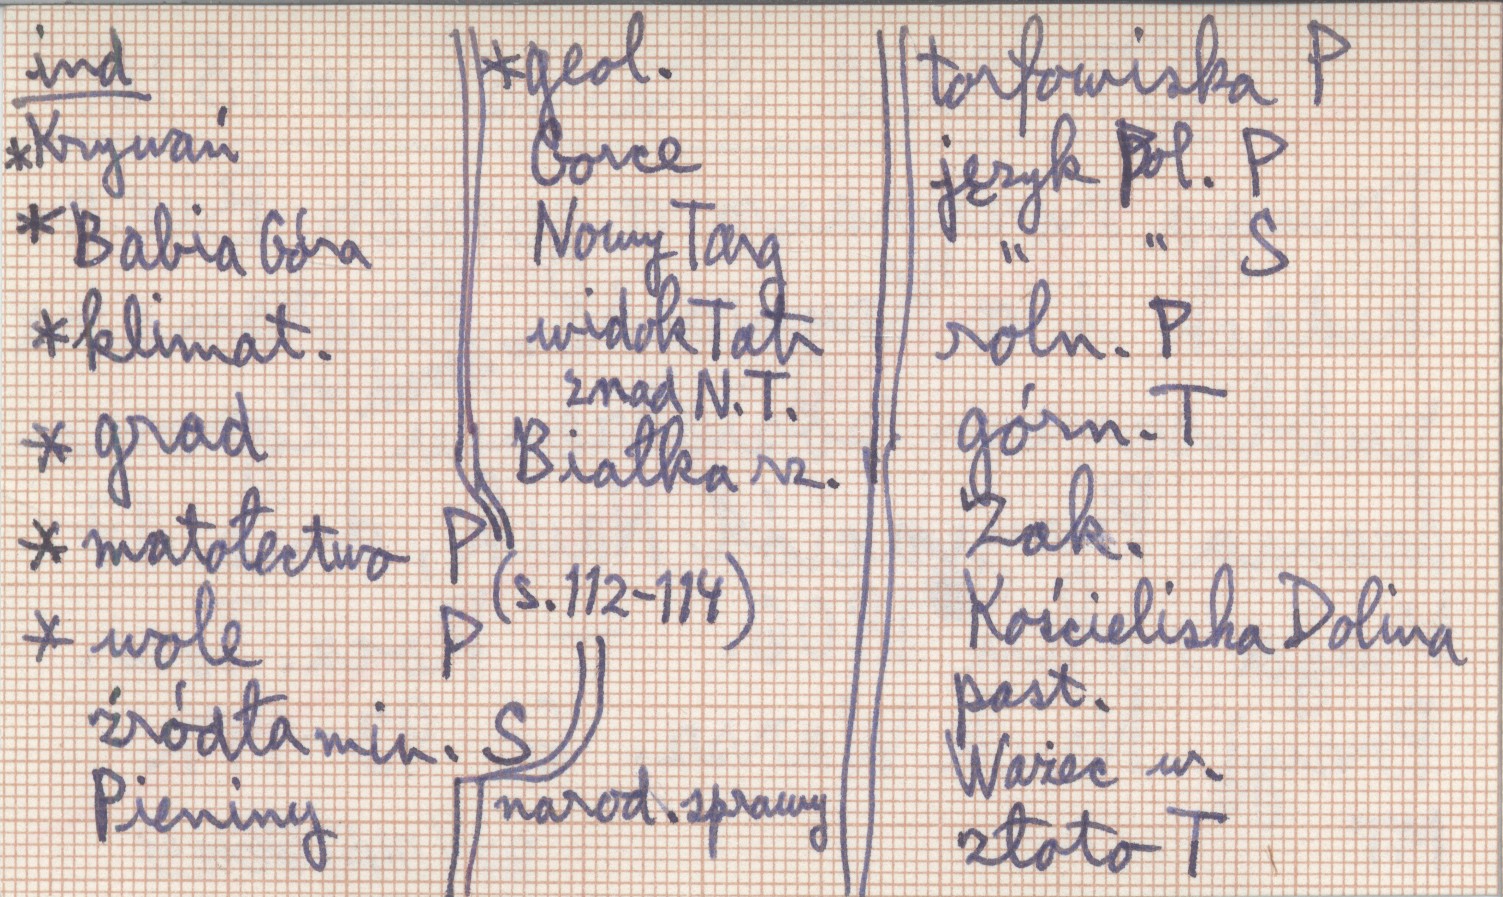 ind
*Krywań
* Babia Góra
* klimat.
* grad
* matołectwo P
* wole P
źródła min. S
Pieniny
*geol.
Gorce
Nowy Targ
widok Tatr
znad N.T.
Białka rz.
(s. 112-114)
narod. sprawy
torfowiska P
język Pol. P
" " S
roln. P
górn. T
Zak.
Kościeliska Dolina
past.
Ważec w.
złoto T